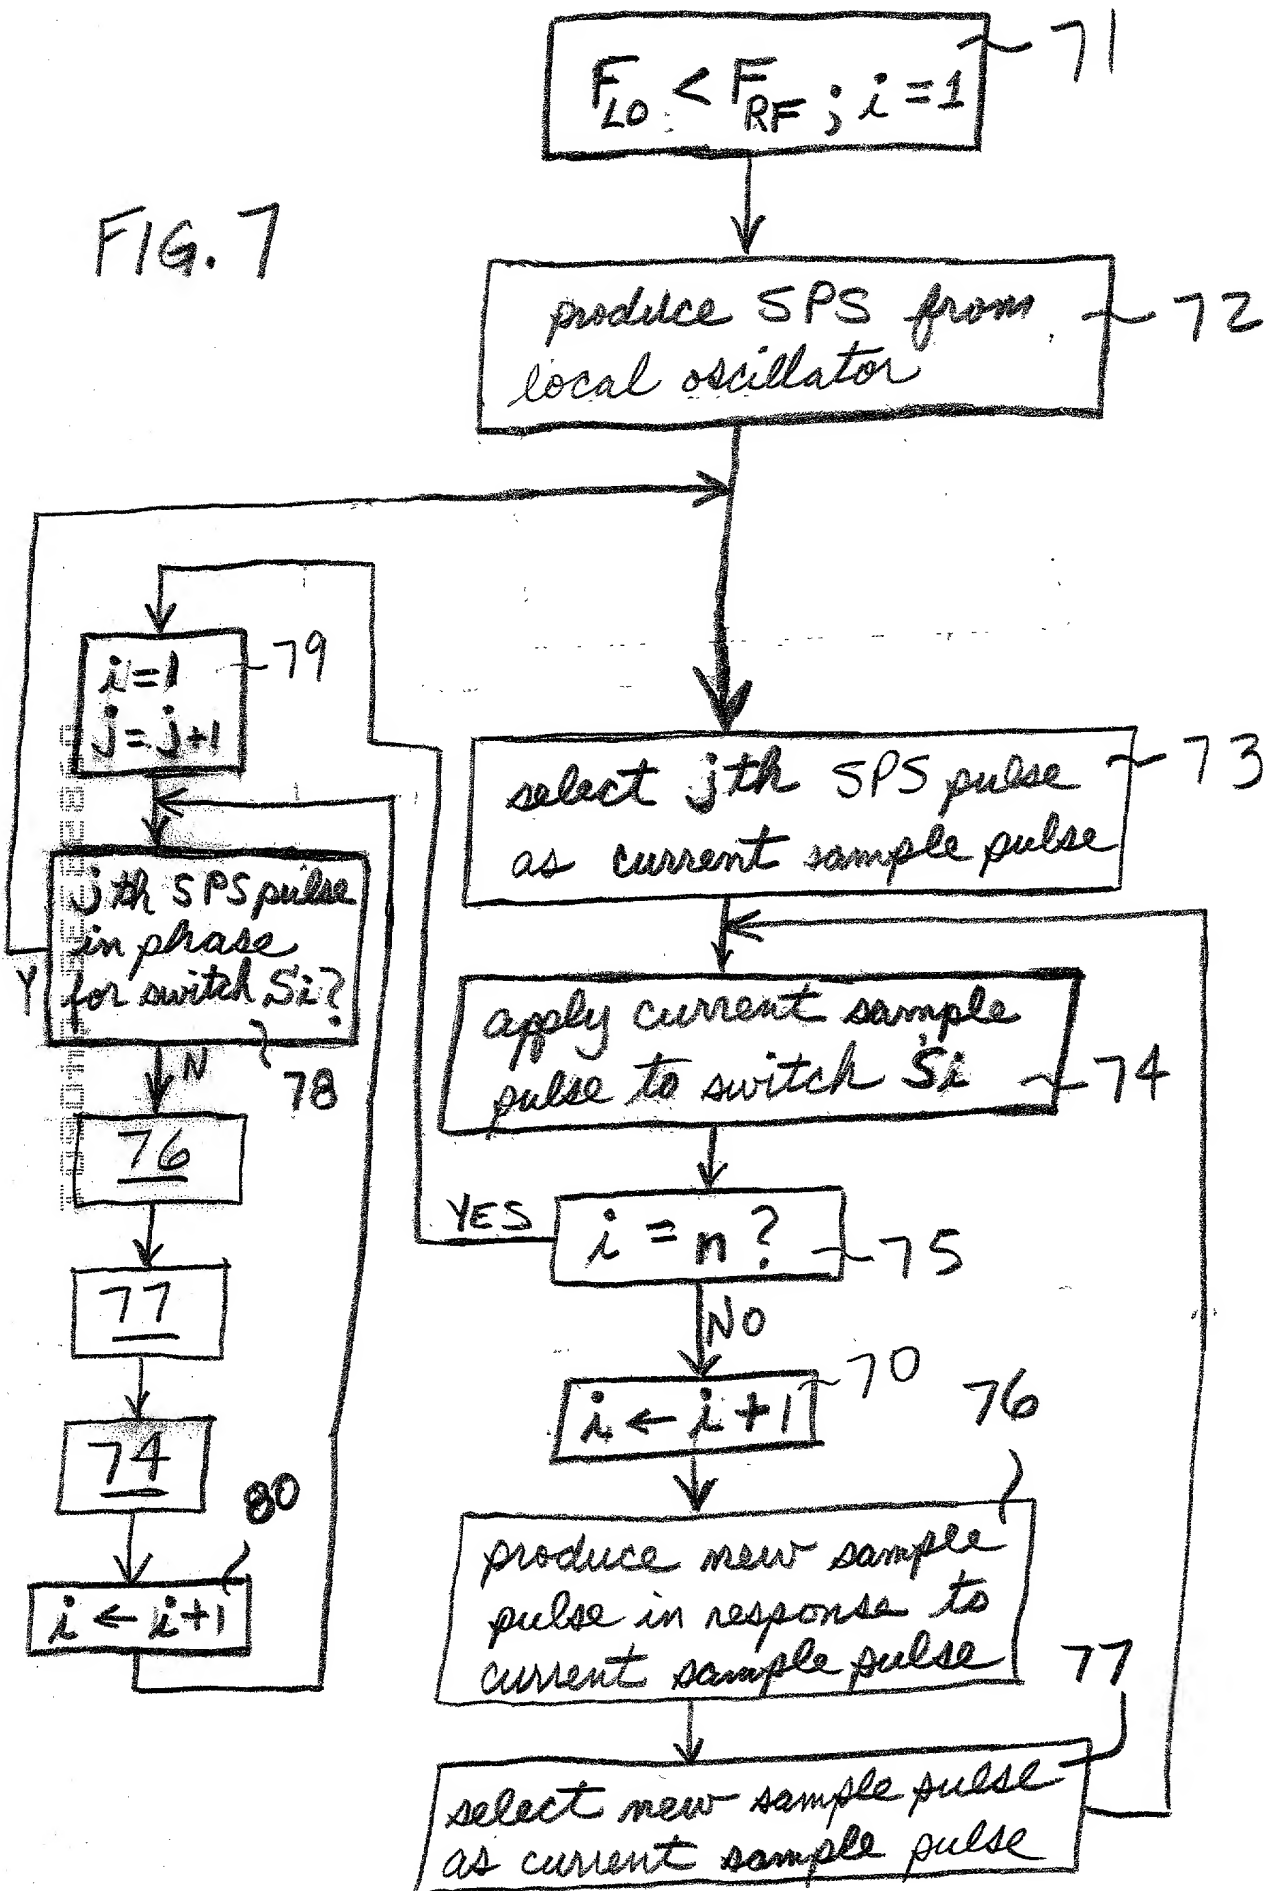 71
F_LO < F_RF ; i = 1
FIG. 7
produce SPS from
local oscillator
72
79
i=1
j=j+1
73
select jth SPS pulse
as current sample pulse
jth SPS pulse
in phase
for switch Si?
Y
N
78
apply current sample
pulse to switch Si
74
76
YES
i = n ?
75
77
NO
70
i ← i + 1
74
76
80
produce new sample
pulse in response to
current sample pulse
i ← i+1
77
select new sample pulse
as current sample pulse